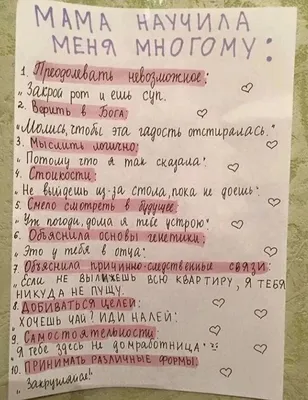 МАМА НАУЧИЛА
МЕНЯ МНОГОМУ:
1. Преодолевать невозможное:
„Закрой рот и ешь суп.
2. Верить в Бога
„Молись, чтобы эта гадость отстиралась."
3. Мыслить логично:
„Потому что я так сказала".
4. Стойкости:
„Не выйдешь из-за стола, пока не доешь".
5. Смело смотреть в будущее
„Уж погоди, дома я тебе устрою".
6. Объяснила основы генетики:
„Это у тебя в отца".
7. Объяснила причинно-следственные связи
„Если не вылижешь всю квартиру, я тебя
никуда не пущу.
8. Добиваться целей:
Хочешь чай? Иди налей.
9. Самостоятельности:
Я тебе здесь не домработница"
10. Принимать различные формы.
„Закрушайае!"